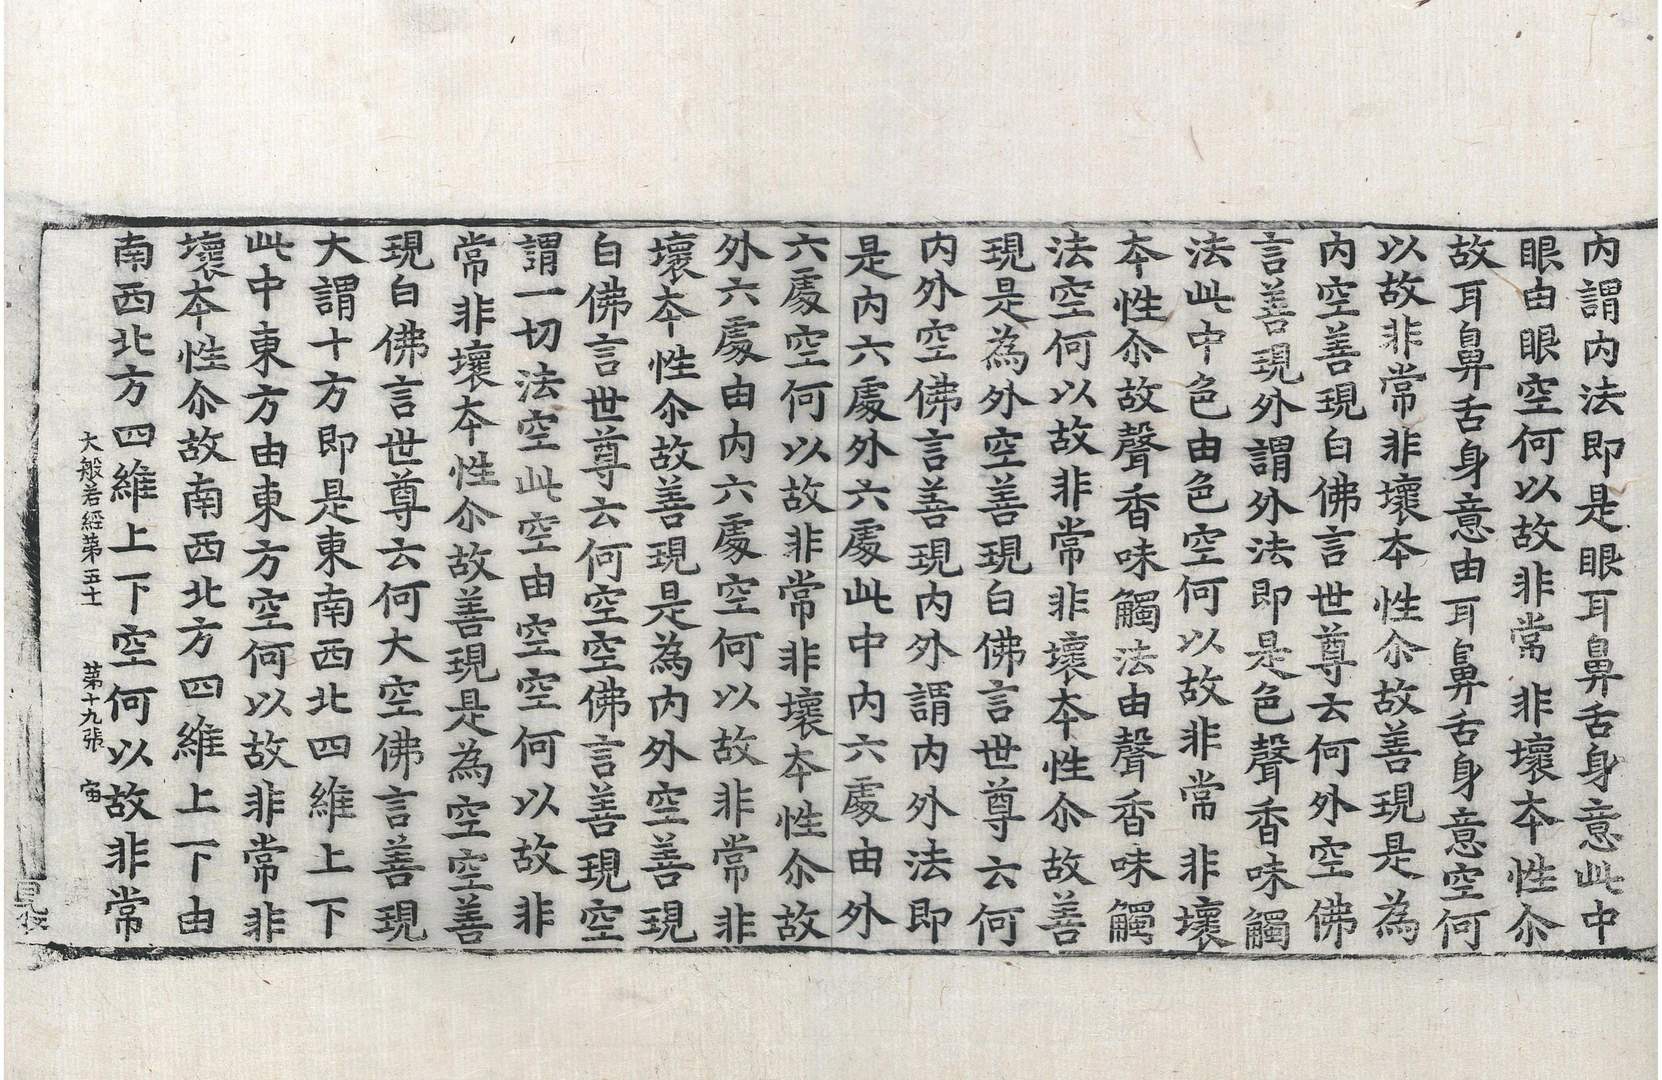 內謂內法即是眼耳鼻舌身意此中
眼由眼空何以故非常非壞本性尒
故耳鼻舌身意由耳鼻舌身意空何
以故非常非壞本性尒故善現是為
內空善現白佛言世尊云何外空佛
言善現外謂外法即是色聲香味觸
法此中色由色空何以故非常非壞
本性尒故聲香味觸法由聲香味觸
法空何以故非常非壞本性尒故善
現是為外空善現白佛言世尊云何
內外空佛言善現內外謂內外法即
是內六處外六處此中內六處由外
六處空何以故非常非壞本性尒故
外六處由內六處空何以故非常非
壞本性尒故善現是為內外空善現
白佛言世尊云何空空佛言善現空
謂一切法空此空由空空何以故非
常非壞本性尒故善現是為空空善
現白佛言世尊云何大空佛言善現
大謂十方即是東南西北四維上下
此中東方由東方空何以故非常非
壞本性尒故南西北方四維上下由
南西北方四維上下空何以故非常
大般若經第五十一 第十九張 宙